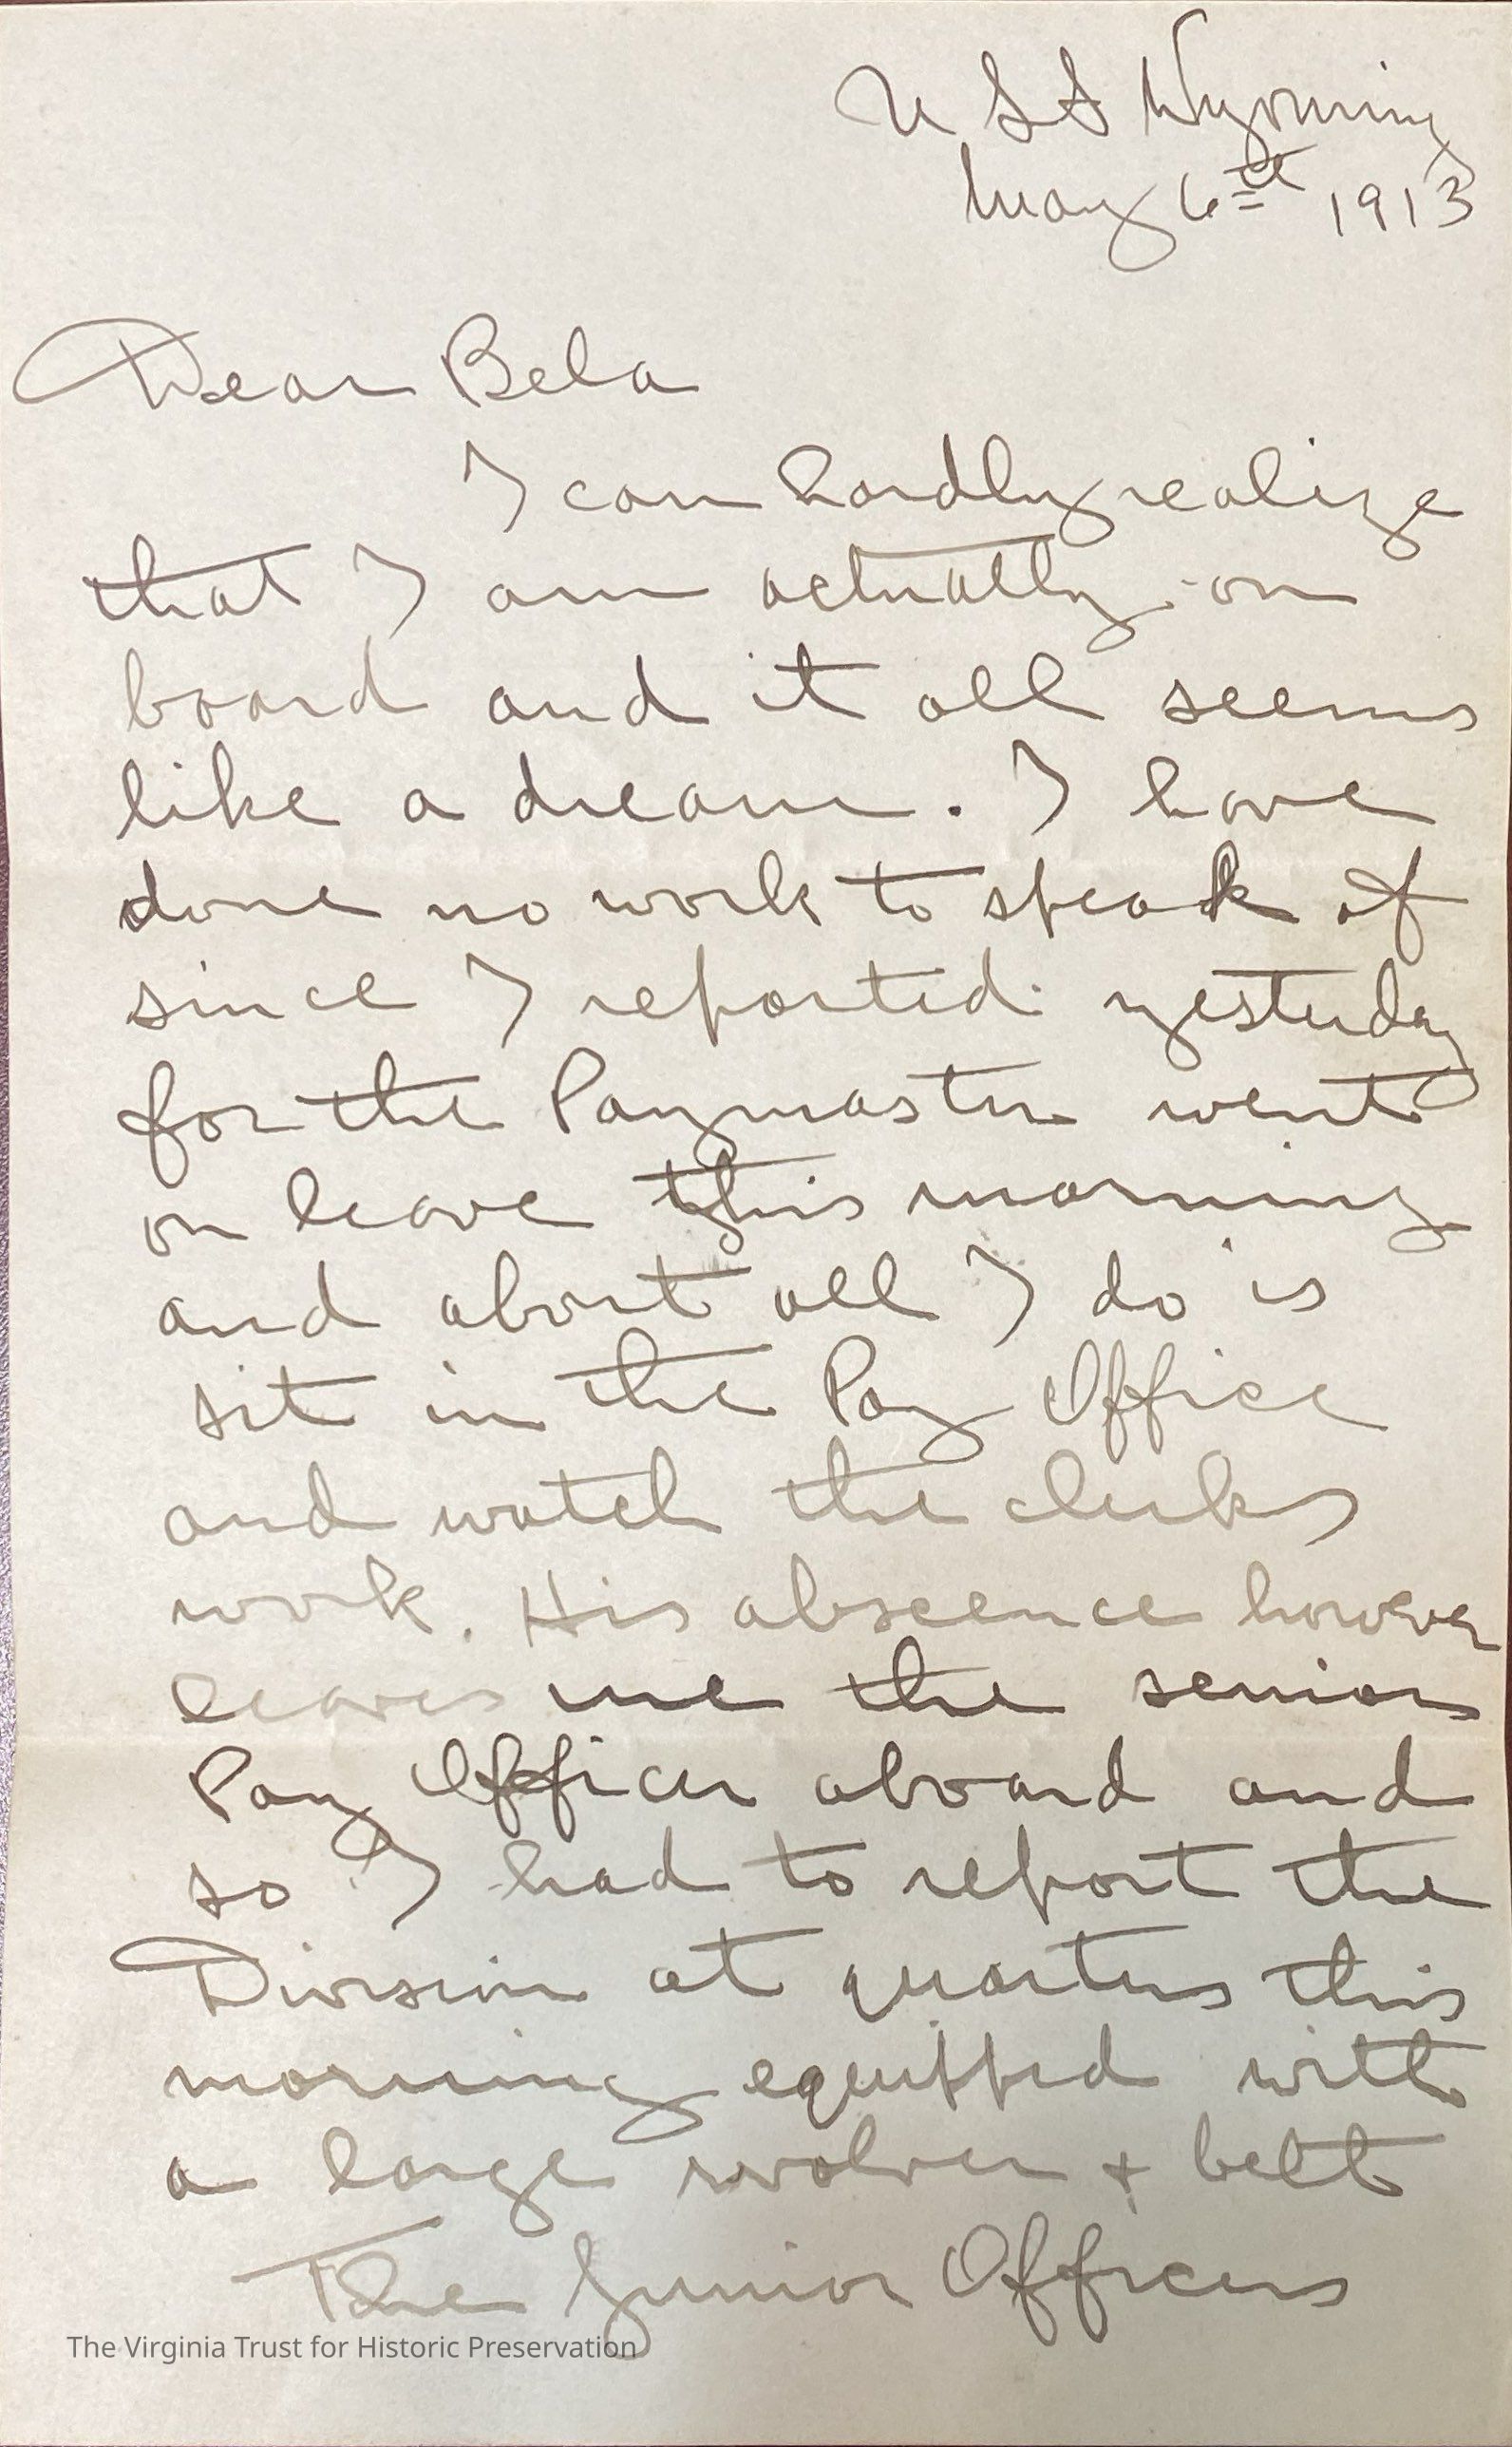 U S S Wyoming
May 6th 1913
Dear Bela
I can hardly realize
that I am actually on
board and it all seems
like a dream. I have
done no work to speak of
since I reported yesterday
for the Paymaster went
on leave this morning
and about all I do is
sit in the Pay Office
and watch the clerks
work. His abscence however
leaves me the senior
Pay Officer aboard and
so I had to report the
Division at quarters this
morning equipped with
a large revolver + belt
The Junior Officers
The Virginia Trust for Historic Preservation